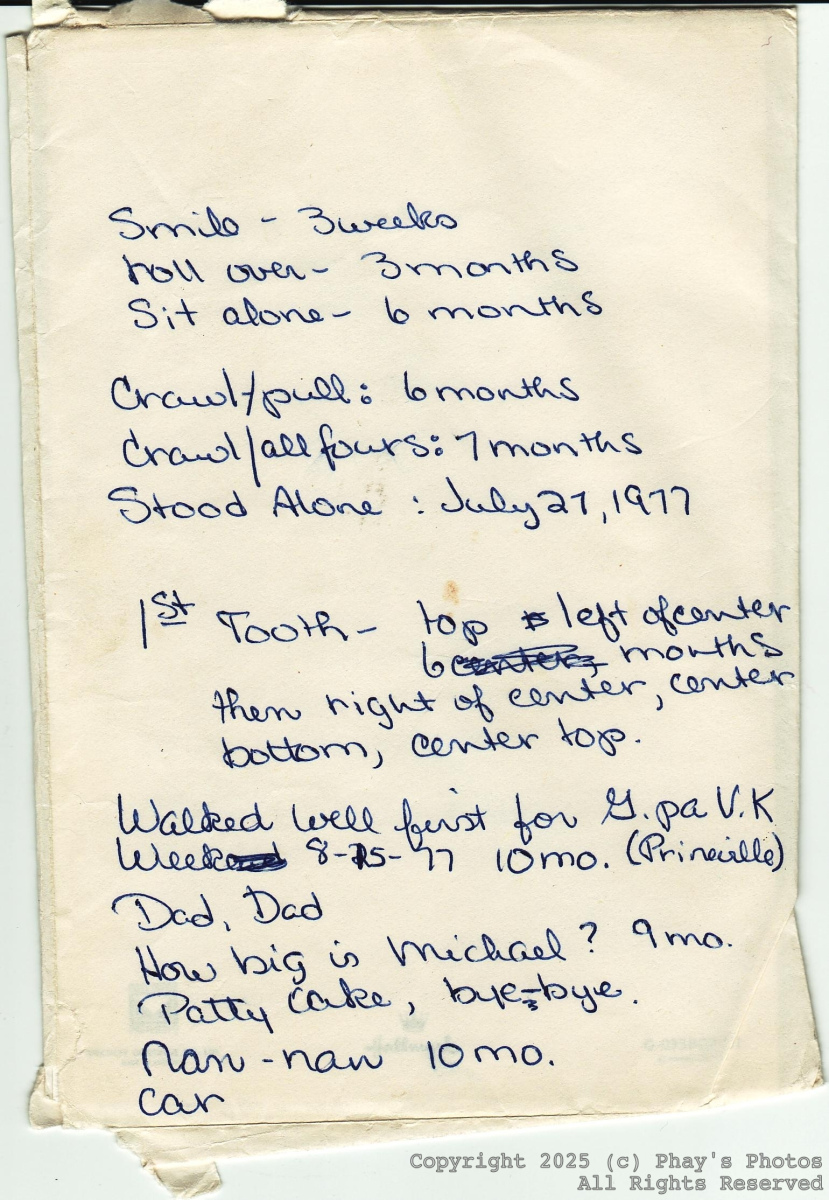 Smile - 3 weeks
roll over - 3 months
Sit alone - 6 months
Crawl/pull: 6 months
Crawl/all fours: 7 months
Stood Alone : July 27, 1977
1st Tooth - top left of center
6 months
then right of center, center
bottom, center top.
Walked well first for G.pa V.K
Week 8-15-77 10 mo. (Prineville)
Dad, Dad
How big is Michael? 9 mo.
Patty Cake, bye-bye.
Naw-naw 10 mo.
Car
Copyright 2025 (c) Phay's Photos
All Rights Reserved